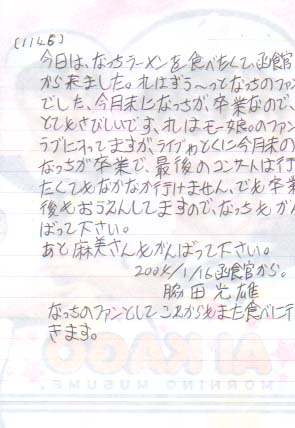 (1146)
今日は、なっちラーメンを食べたくて函館
から来ました。れはずう〜っとなっちのファン
でした、今月末になっちが、卒業なので、
とてもさびしいです、れはモー娘。のファン
ラブに入ってますが、ライブやとくに今月末の
なっちが卒業で、最後のコンサートは行
たくてもなかなか行けません、でも卒業
後もおうえんしてますので、なっちもがん
ばって下さい。
あと麻美さんもがんばって下さい。
2004/1/16函館から。
脇田光雄
なっちのファンとしてこれからもまた食べに行
きます。
AI KAGO
MORNING MUSUME.